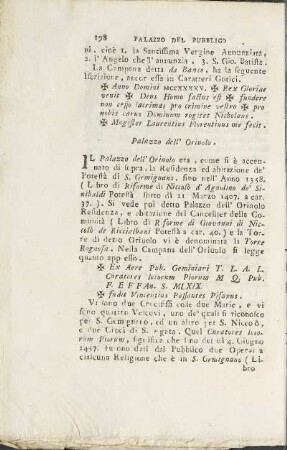 198 PALAZZO DEL PUBBLICO
ni, cioè 1. la Santissima Vergine Annunziata,
2. l'Angelo che l'annunzia, 3. S. Gio. Batista.
La Campana detta da Banco, ha la seguente
Iscrizione, ancor essa in Caratteri Gotici.
✠ Anno Domini MCCXXXXV. ✠ Rex Gloriae
venit ✠ Deus Homo factus est ✠ fundere
non cesso lacrimas pro crimine vestro ✠ pro
nobis carus Dominum rogitet Nicholaus.
✠ Magister Laurentius Florentinus me fecit.
Palazzo dell' Oriuolo.
IL Palazzo dell'Oriuolo era, come si è accen-
nato di sopra, la Residenza ed abitazione de'
Potestà di S. Gemignano, fino nell'Anno 1358.
( Libro di Riforme di Niccolò d'Agnolino de' Si-
nibaldi Potestà sotto di 21 Marzo 1407. a car.
37. ). Si vede poi detto Palazzo dell'Oriuolo
Residenza, e abitazione del Cancellier della Co-
munità ( Libro di Riforme di Giovanni di Nic-
colò de Riccialbani Potestà a car. 40. ) e la Tor-
re di detto Oriuolo vi è denominata la Torre
Rognosa. Nella Campana dell'Oriuolo si legge
quanto appresso.
✠ Ex Aere Pub. Geminiari T. L. A. L.
Curatores locorum Piorum M Q. Pub.
F. E F FAn. S. MLXIX
✠ fudit Vincentius Possantes Pisanus.
Vi sono due Crocifissi colle due Marie, e vi
sono quattro Vescovi, uno de' quali si riconosce
per S. Gemignano, ed un altro per S. Niccolò,
e due Croci di S. Agata. Quel Curatores loco-
rum Piorum, significa che fino dei dì 4. Giugno
1457. furono dati dal Pubblico due Operai a
ciascuna Religione che è in S. Gemignano ( Li-
bro